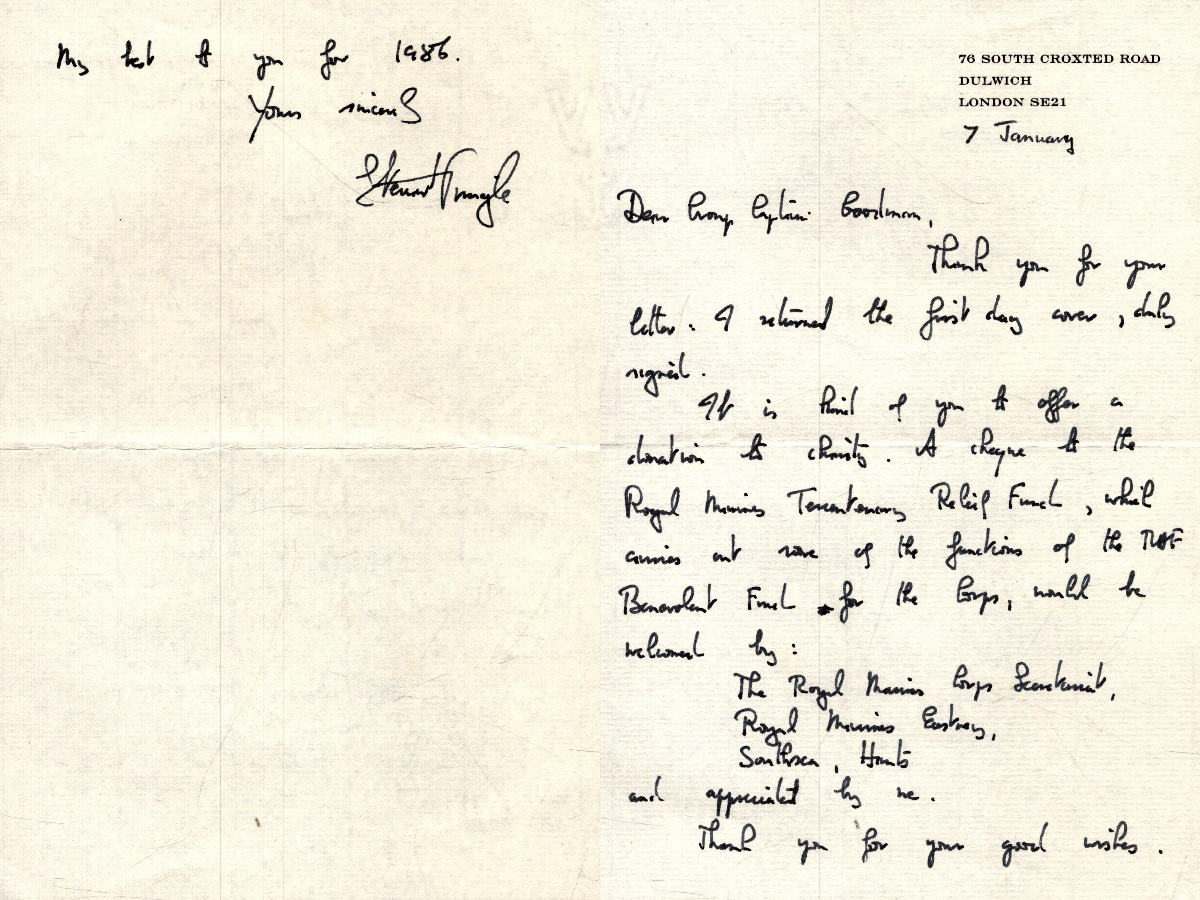 76 SOUTH CROXTED ROAD
DULWICH
LONDON SE21
7 January
Dear Group Captain Goodman,
Thank you for your
letter. I returned the first day cover, duly
signed.
It is kind of you to offer a
donation to charity. A cheque to the
Royal Marines Tercentenary Relief Fund, which
carries out some of the functions of the RAF
Benevolent Fund for the Corps, would be
welcomed by:
The Royal Marines Corps Secretariat,
Royal Marines Eastney,
Southsea, Hants
and appreciated by me.
Thank you for your good wishes.
My best to you for 1986.
Yours sincerely
Steuart Pringle